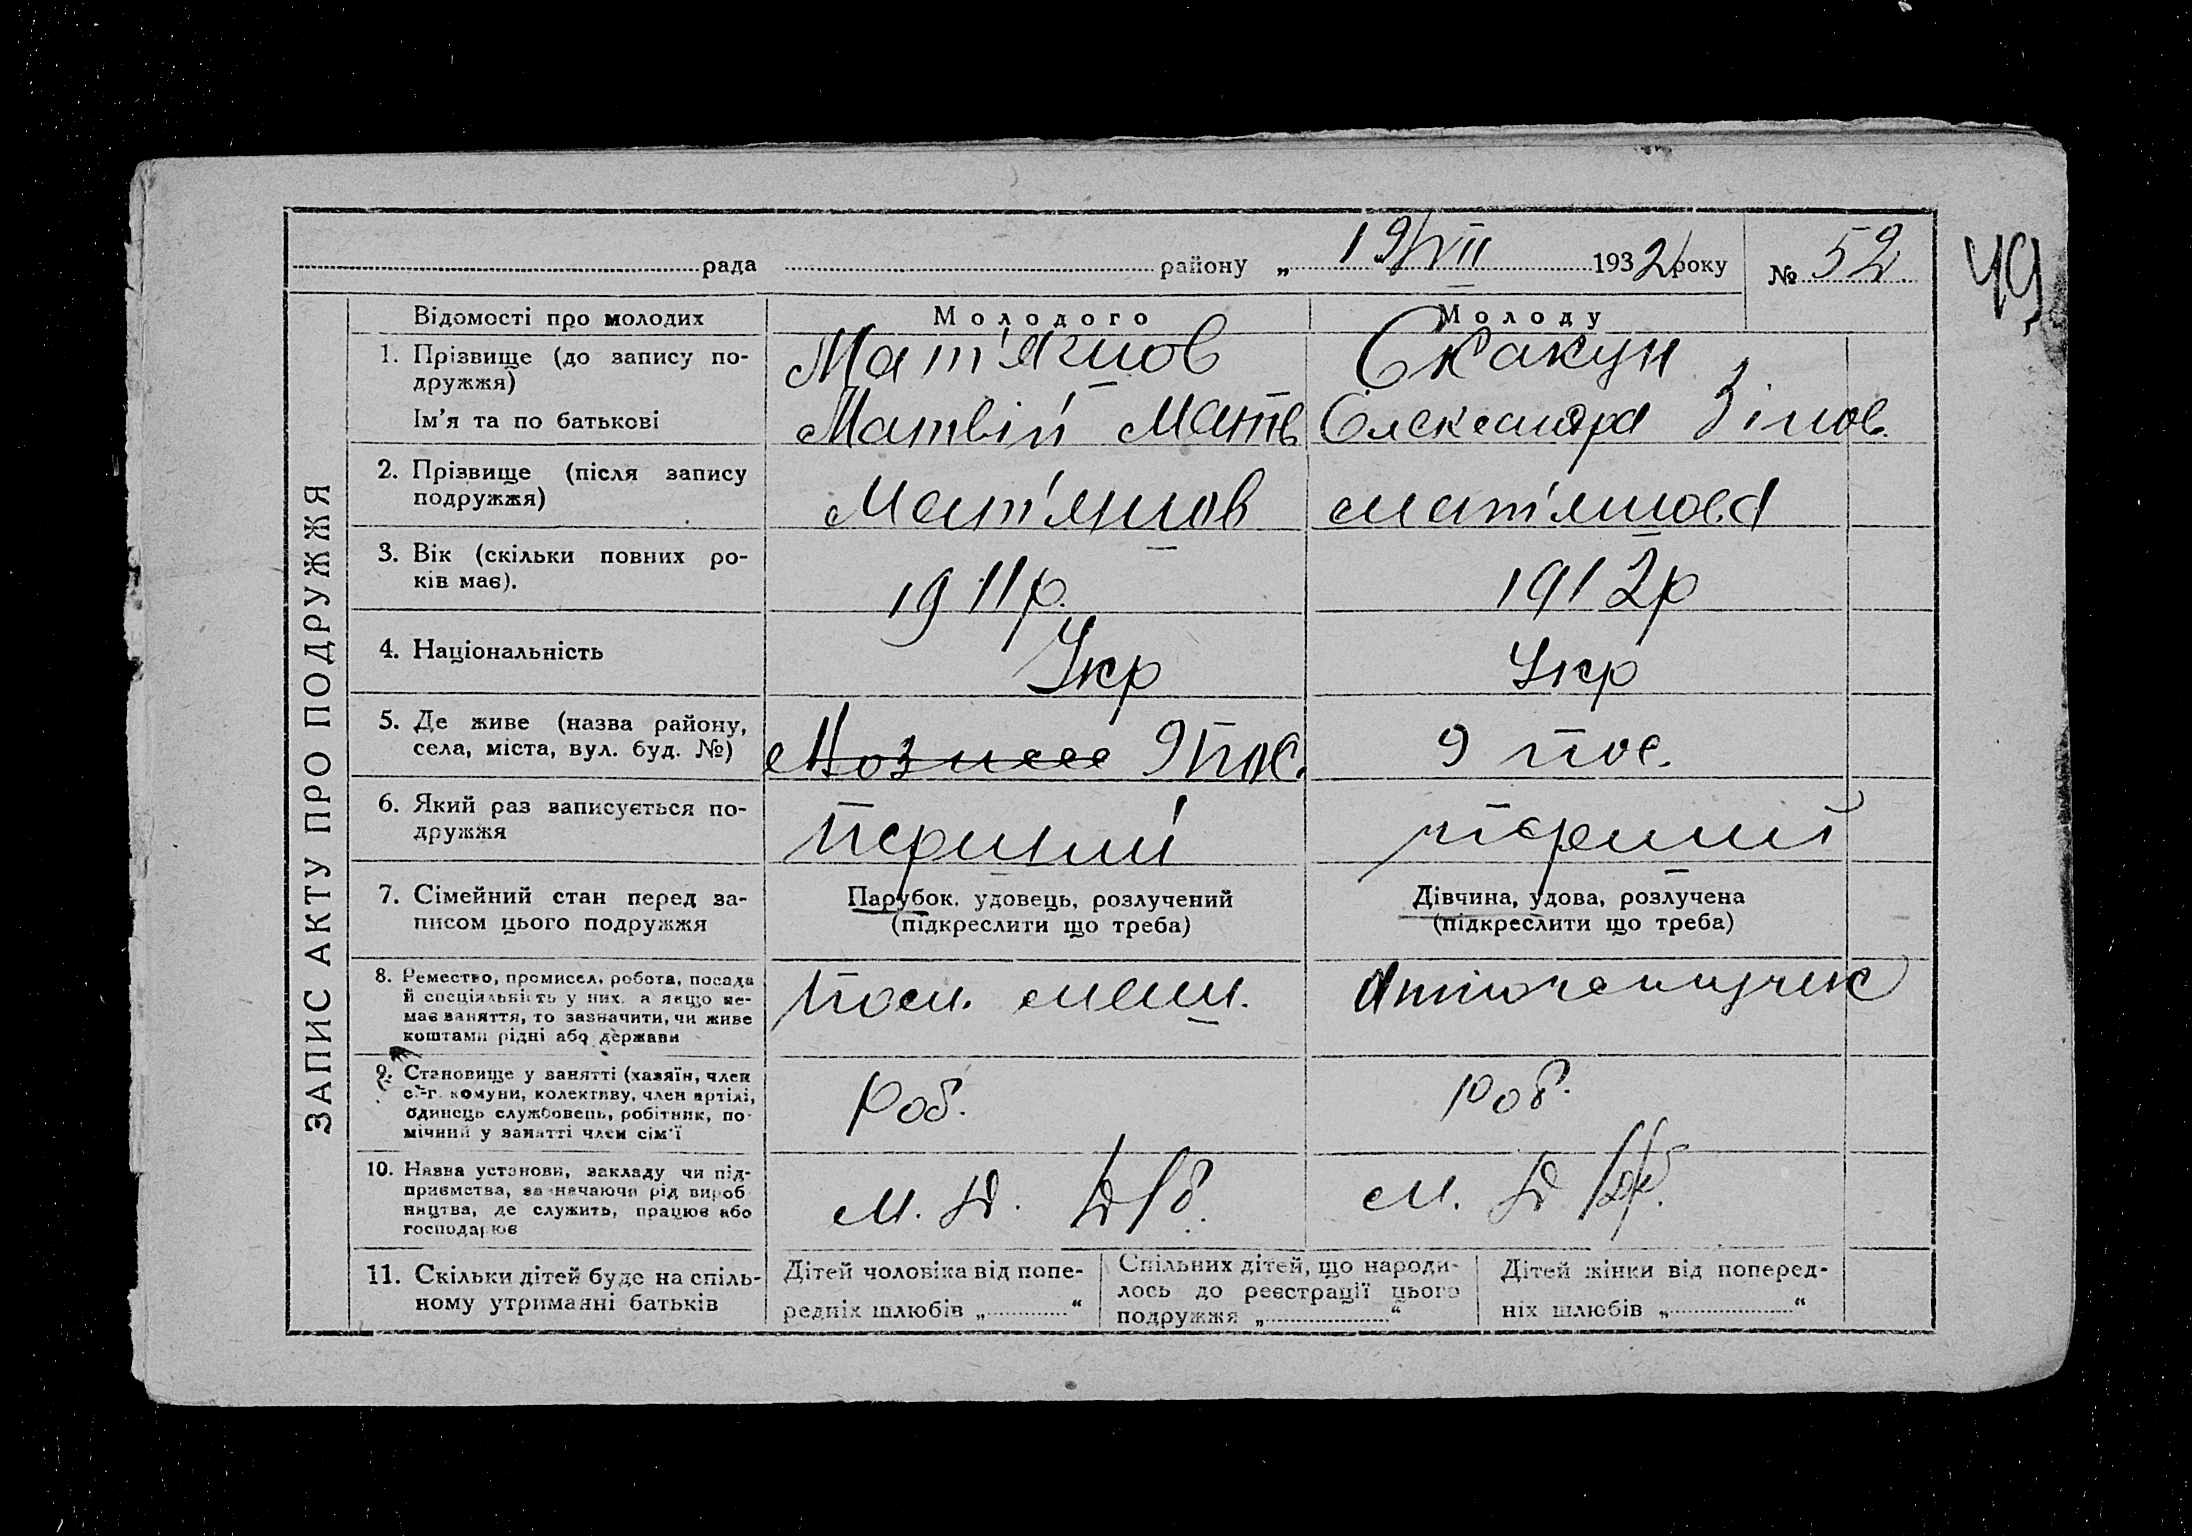 рада району „ 19/VII 1932 року № 52
49
ЗАПИС АКТУ ПРО ПОДРУЖЖЯ
Відомості про молодих Молодого Молоду
1. Прізвище (до запису по-
дружжя) Мат'яшов Скакун
Ім'я та по батькові Матвій Матв Олександра Зінов.
2. Прізвище (після запису
подружжя) Мат'яшов Мат'яшова
3. Вік (скільки повних ро-
ків має). 1911 р. 1912 р
4. Національність Укр Укр
5. Де живе (назва району,
села, міста, вул. буд. №) 9 пос. 9 пос.
6. Який раз записується по-
дружжя перший перший
7. Сімейний стан перед за-
писом цього подружжя
Парубок, удовець, розлучений
(підкреслити що треба)
Дівчина, удова, розлучена
(підкреслити що треба)
8. Ремество, промисел, робота, посада
й спеціяльність у них, а якщо не-
має заняття, то зазначити, чи живе
коштами рідні або держави
пом. маш.
9. Становище у занятті (хазяїн, член
с.-г. комуни, колективу, член артілі,
одинець службовець, робітник, по-
мічний у занятті член сім'ї
Роб. роб.
10. Назва установи, закладу чи під-
приємства, зазначаючи рід вироб
ництва, де служить, працює або
господарює
М. Д. М. Д
11. Скільки дітей буде на спіль-
ному утриманні батьків
Дітей чоловіка від попе-
редніх шлюбів „ “
Спільних дітей, що народи-
лось до реєстрації цього
подружжя „ “
Дітей жінки від поперед-
ніх шлюбів „ “